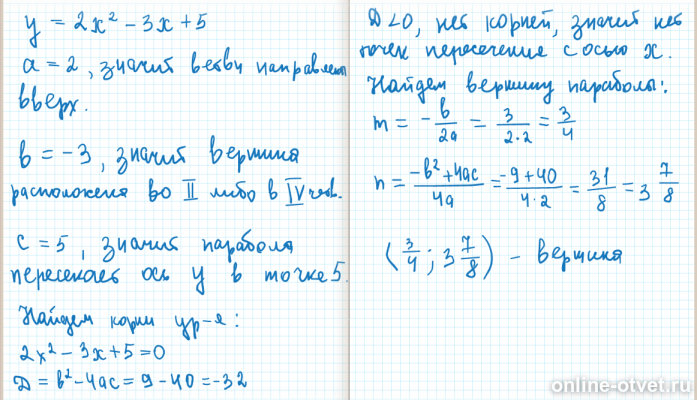 y = 2x² - 3x + 5
a = 2, значит ветви направлены
вверх.
b = -3, значит вершина
расположена во II либо в IV четв.
c = 5, значит парабола
пересекает ось y в точке 5.
Найдем корни ур-я:
2x² - 3x + 5 = 0
D = b² - 4ac = 9 - 40 = -32
D < 0, нет корней, значит нет
точек пересечение с осью x.
Найдем вершину параболы:
m = -b/2a = 3/2·2 = 3/4
n = -b² + 4ac/4a = -9 + 40/4·2 = 31/8 = 3 7/8
(3/4; 3 7/8) - вершина
online-otvet.ru